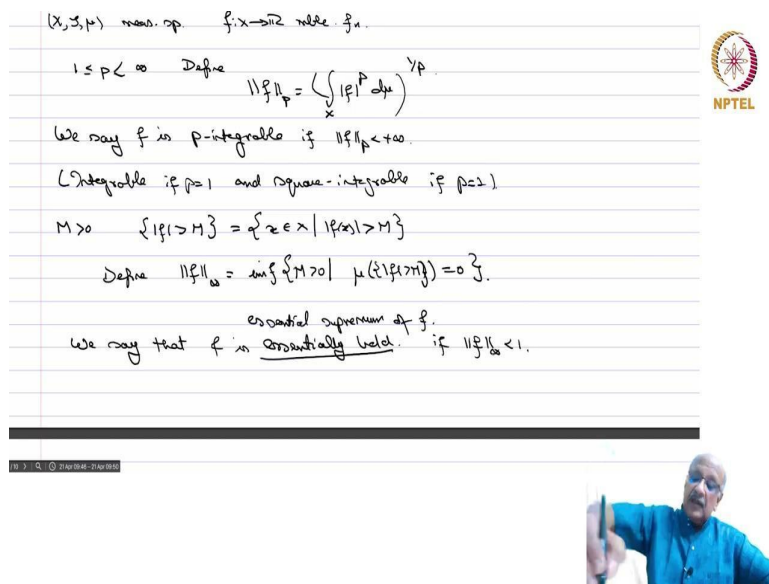 (X, S, μ) meas. sp. f: X→ℝ mble. fn.
1 ≤ p < ∞ Define
‖f‖_p = (∫_X |f|^p dμ)^{1/p}.
We say f is p-integrable if ‖f‖_p < +∞.
(Integrable if p=1 and square-integrable if p=2)
M>0 {|f|>M} = {x ∈ X | |f(x)|>M}
Define ‖f‖_∞ = inf {M>0 | μ({|f|>M}) = 0}.
essential supremum of f.
We say that f is essentially bdd. if ‖f‖_∞ < 1.
NPTEL
/10 21 Apr 09:46 - 21 Apr 09:50